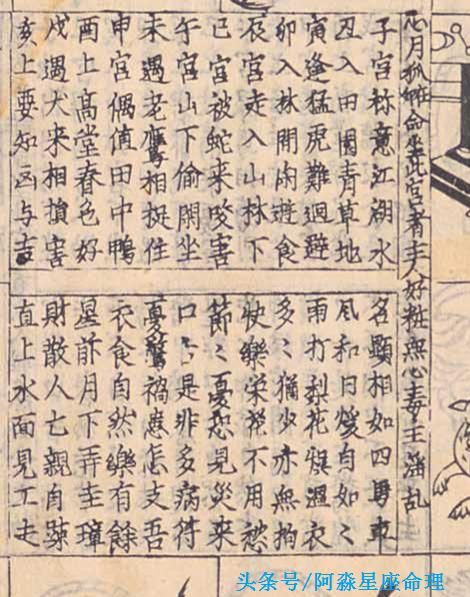 心月狐 命坐此宫者主人好粧無心毒主淫乱
子宫称意江湖水
丑入田園青草地
寅逢猛虎難迴避
卯入林間閑遊食
辰宫走入山林下
巳宫被蛇来咬害
午宫山下偷閑坐
未遇老鷹相挺住
申宫偶值田中鴨
酉上高堂春色好
戌遇犬来相損害
亥上要知凶与吉
名顯相如四馬車
風和日煖自如〻
雨打梨花損溫衣
多〻猶少亦無拘
快樂荣華不用愁
節〻憂愁見災来
口〻是非多病符
憂驚禍患怎支吾
衣食自然樂有餘
星前月下弄圭璋
財散人亡親自疎
直上水面見工夫
头条号/阿淼星座命理